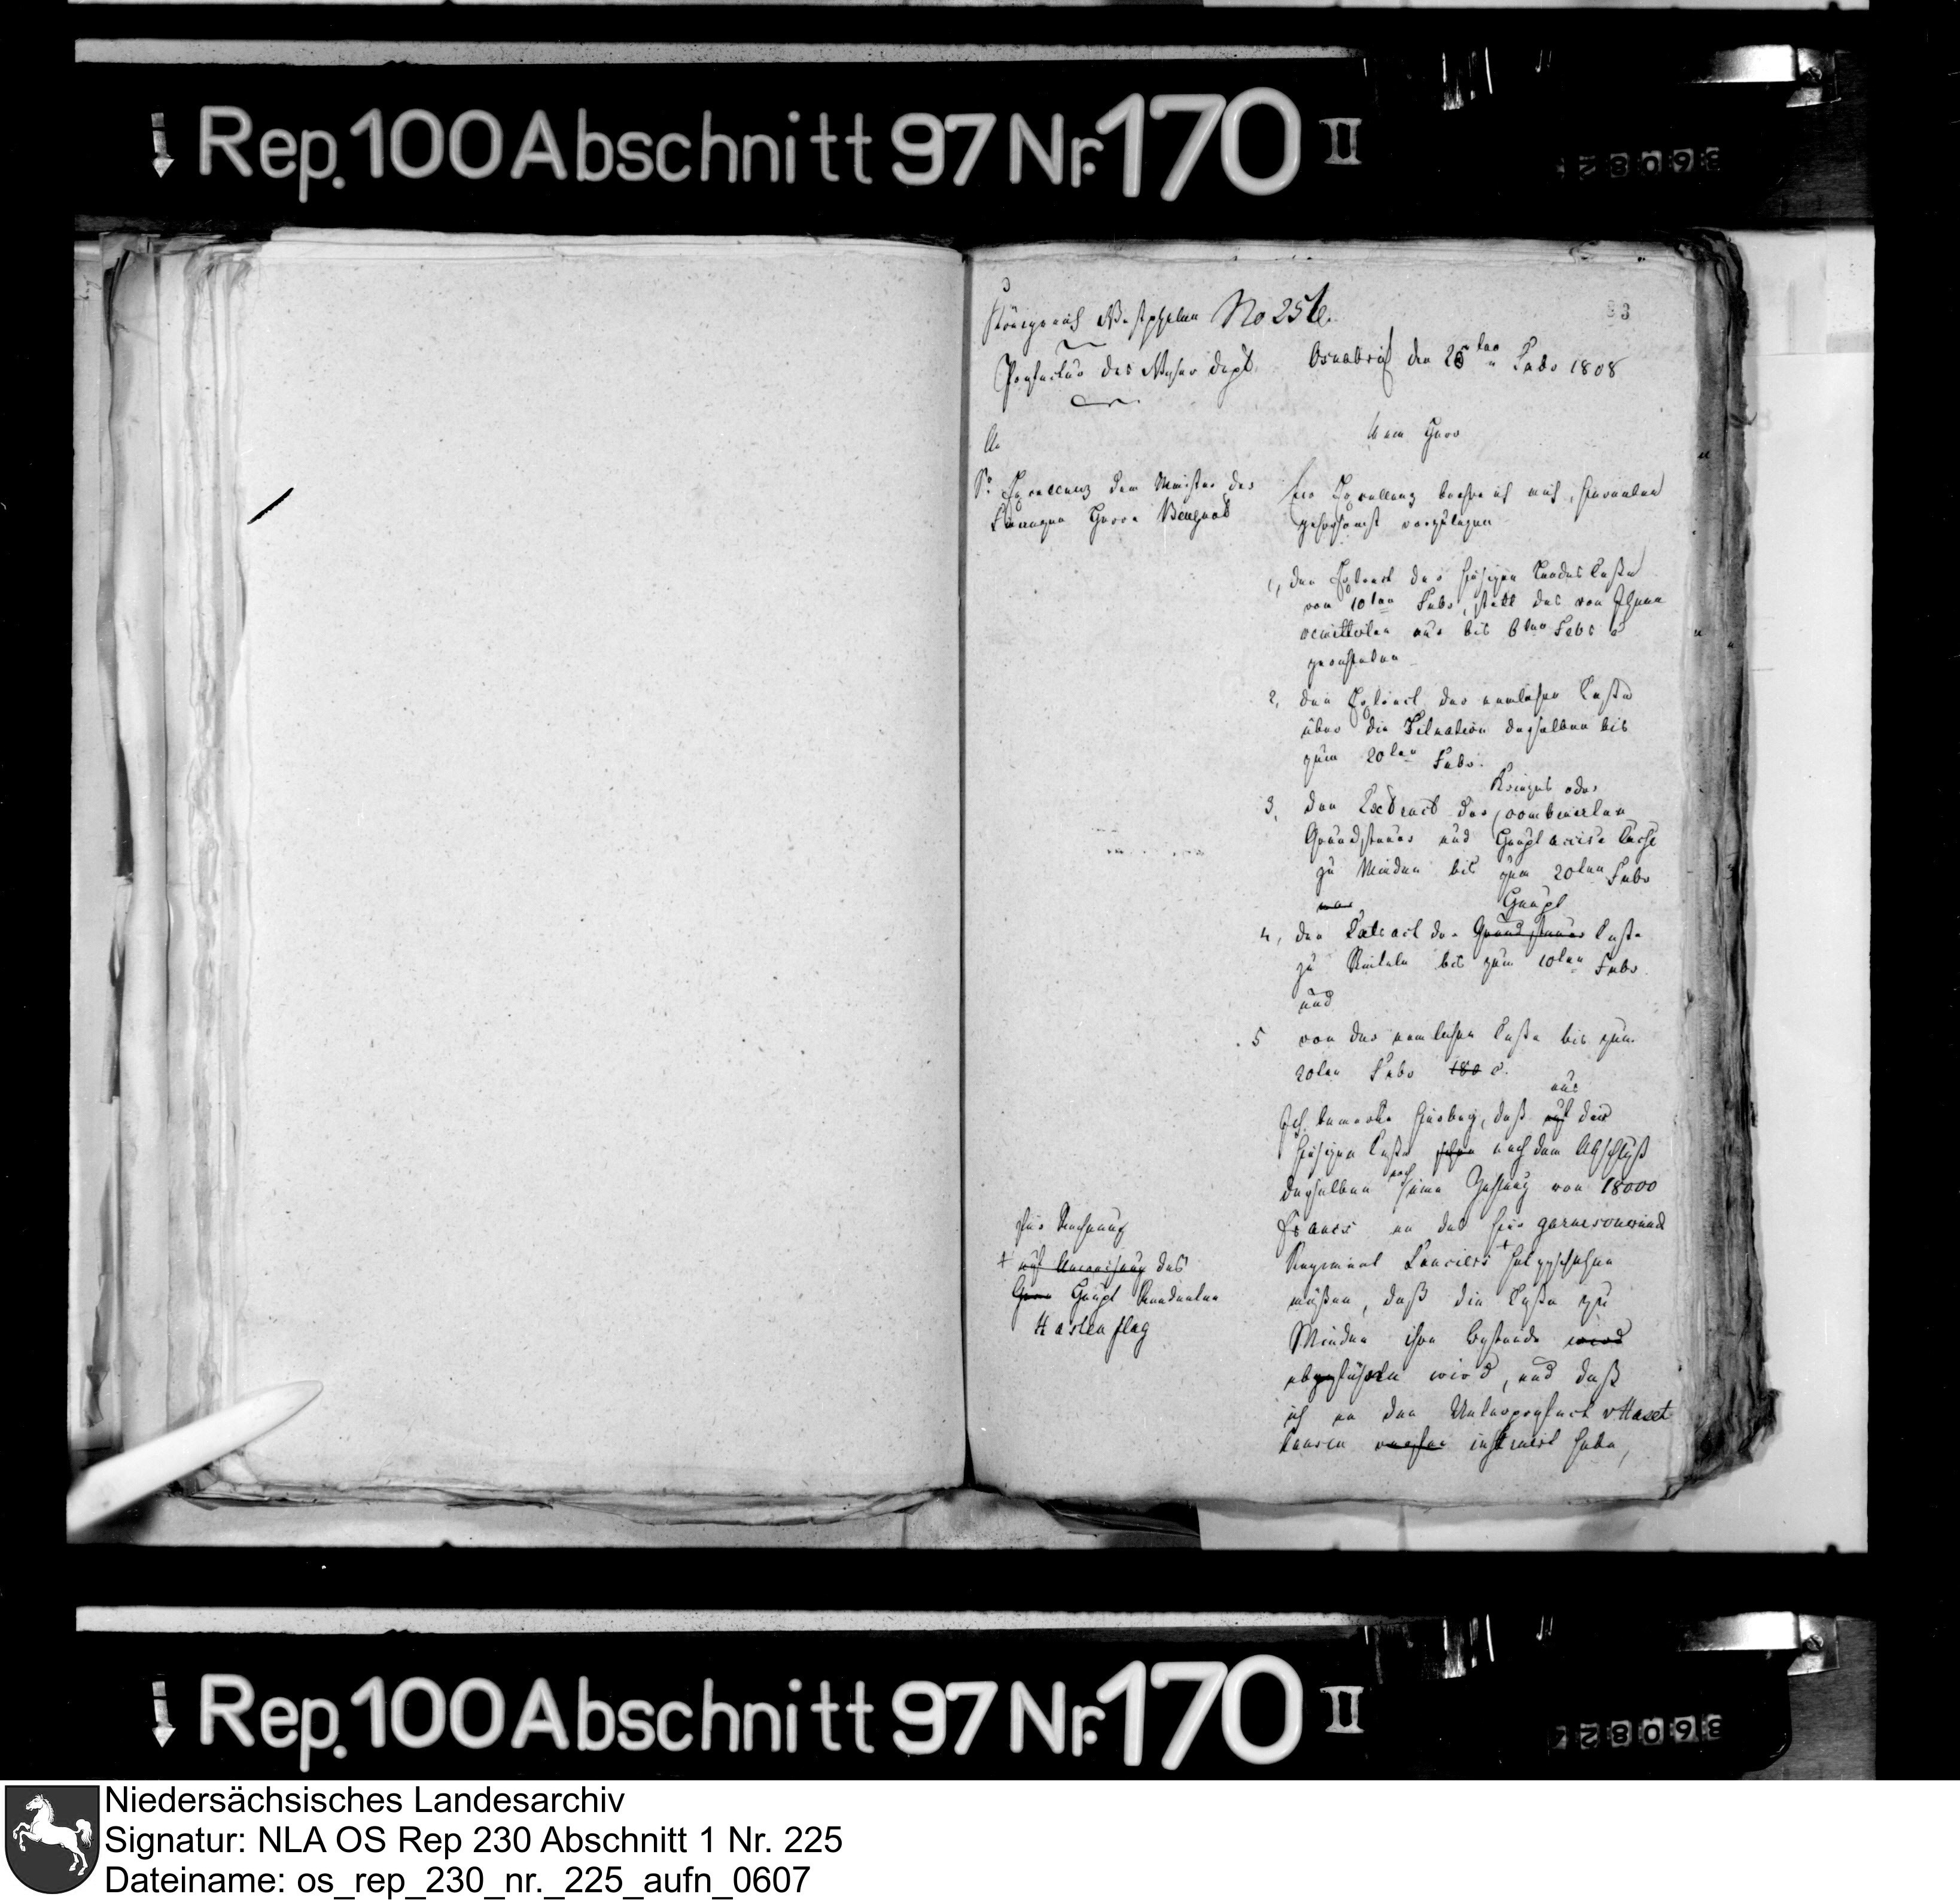 Rep. 100 Abschnitt 97 Nr. 170 II
36082
93
Königreich Westphalen No 256.
Praefectur des Weser Dept. Osnabrück den 25ten Febr 1808
An
Sr Excellenz dem Minister der
Finanzen Herrn Beugnot
Mein Herr
Ew Excellenz beehre ich mich, hierneben
gehorsamst vorzulegen
1, den Extract der hiesigen Landes Casse
vom 10ten Febr, statt des von Ihnen
remittirten nur bis 6ten Febr c
gereichten
2, den Extract der nemlichen Casse
über die Situation derselben bis
zum 20ten Febr.
Krieges oder
3, den Extract der combinirten
Grundsteuer und Haupt accise Casse
zu Minden bis zum 20ten Febr
Haupt
4, den Extract der Grundsteuer Casse
zu Rinteln bis zum 10ten Febr.
und
5 von der nemlichen Casse bis zum
20ten Febr 180 c.
aus
Ich bemerke hierbey, daß auf der
hiesigen Casse schon nach dem Abschluß
derselben noch eine Zahlung von 18000
Francs an das hier garnisonirende
Regiment Lanciers + hat geschehen
müßen, daß die Casse zu
Minden ihre Bestände wird
abgeführen wird, und daß
ich an den Unterpraefect v Haxt
hausen vorher instruirt habe,
für Rechnung
+ auf Anweisung des
Herrn Haupt Rendanten
Hastenpflug
Rep. 100 Abschnitt 97 Nr. 170 II
36082
Niedersächsisches Landesarchiv
Signatur: NLA OS Rep 230 Abschnitt 1 Nr. 225
Dateiname: os_rep_230_nr._225_aufn_0607